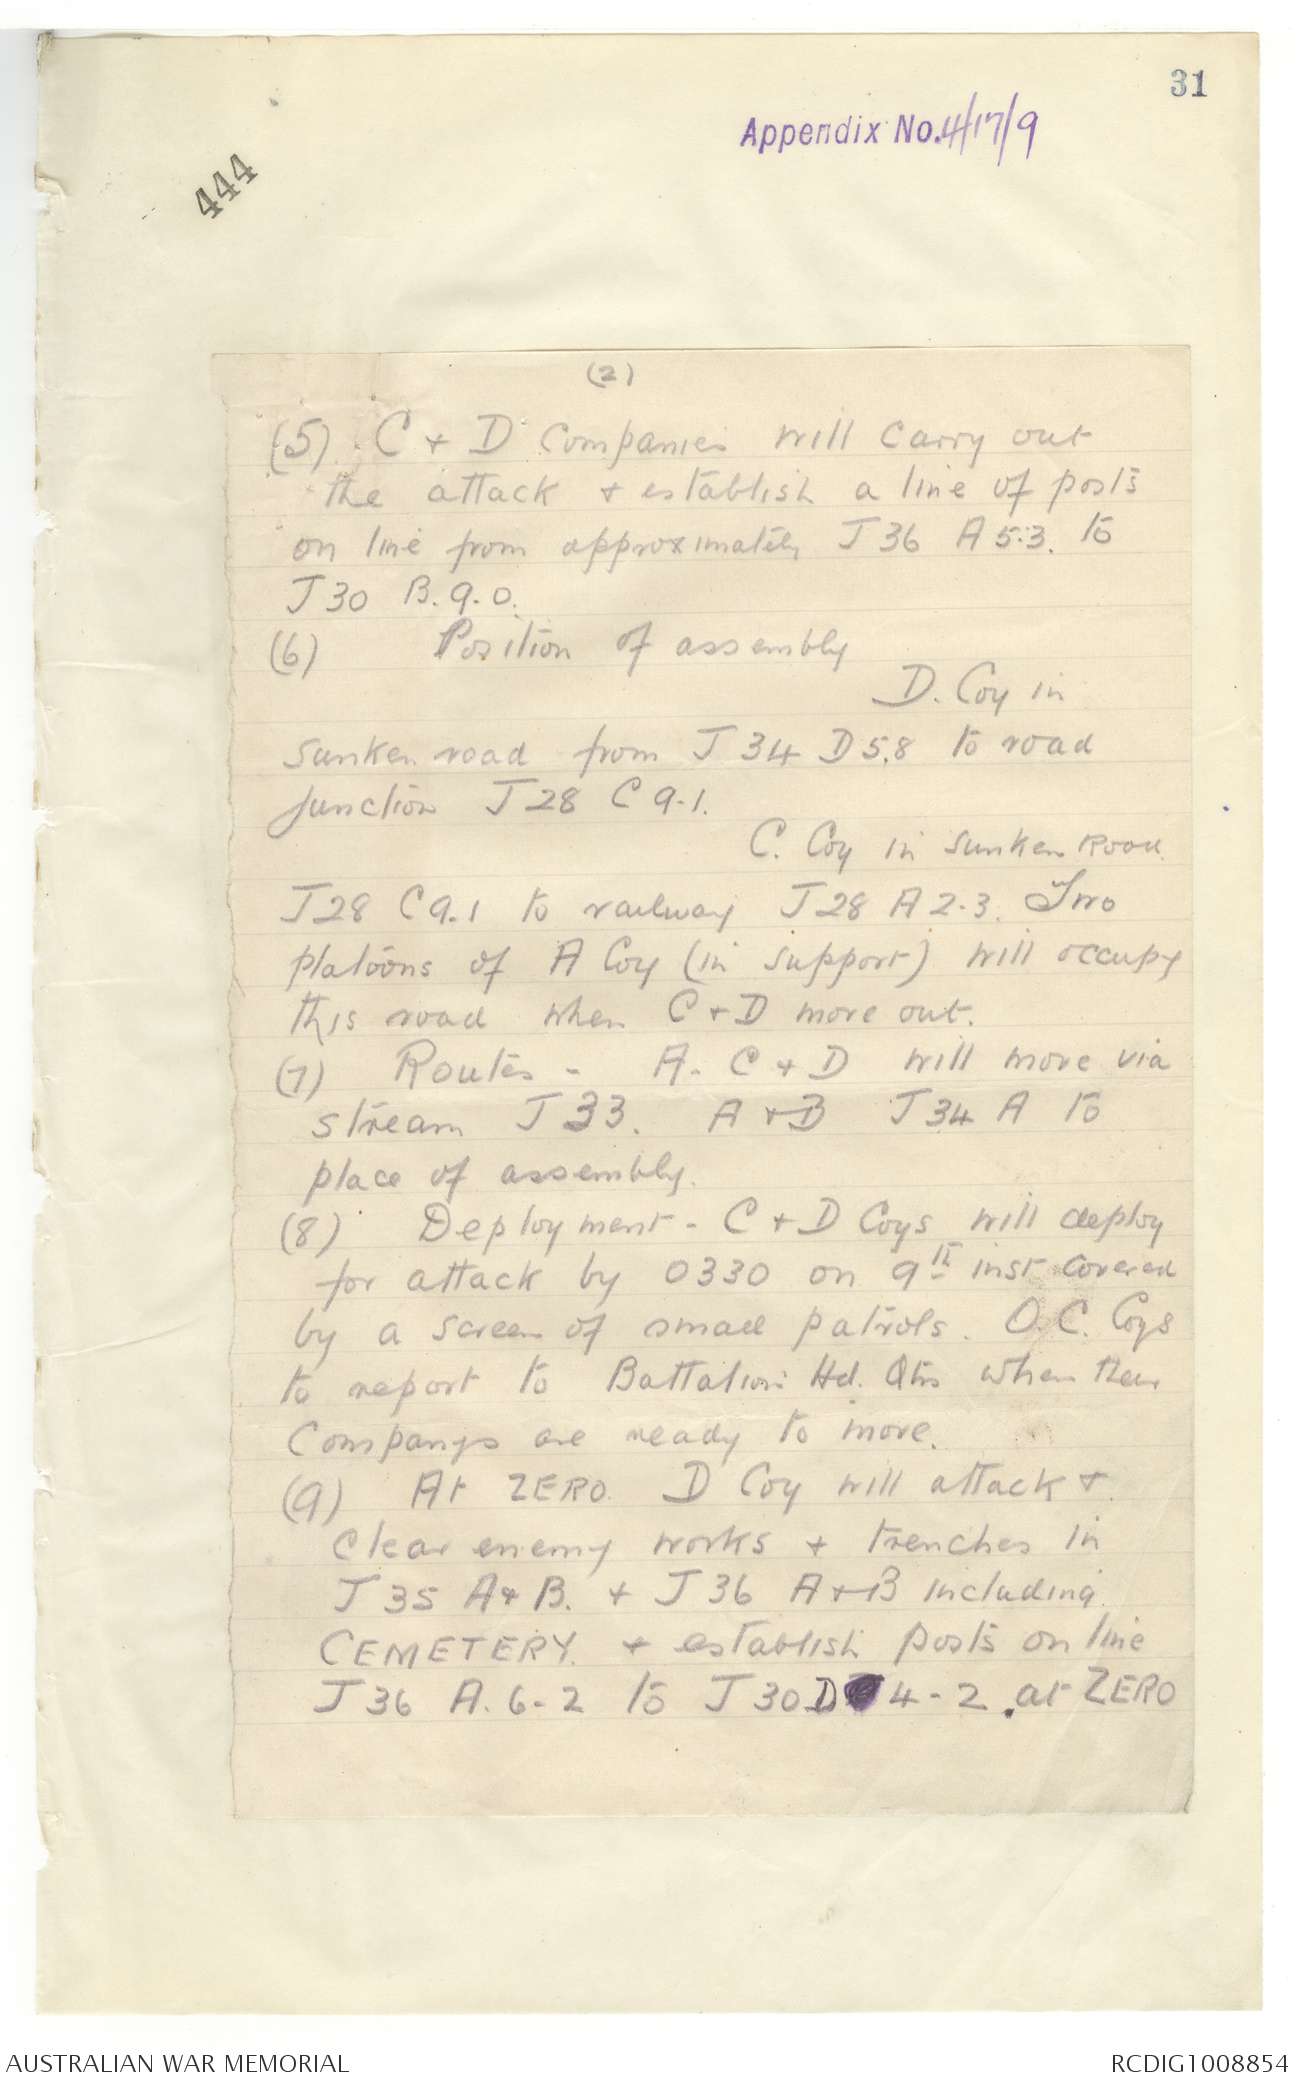 31
Appendix No. 4/17/9
444
(2)
(5) C + D Companies will carry out
the attack + establish a line of posts
on line from approximately J 36 A 5.3. to
J 30 B. 9.0.
(6) Position of assembly
D. Coy in
sunken road from J 34 D 5.8 to road
junction J 28 C 9.1.
C. Coy in sunken Road
J 28 C 9.1 to railway J 28 A 2.3. Two
platoons of A Coy (in support) will occupy
this road when C + D move out.
(7) Routes - A. C + D will move via
stream J 33. A + B J 34 A to
place of assembly.
(8) Deployment - C + D Coys will deploy
for attack by 0330 on 9th inst covered
by a screen of small patrols. O.C. Coys
to report to Battalion Hd. Qtrs when their
Companys are ready to move.
(9) At ZERO. D Coy will attack +
clear enemy works + trenches in
J 35 A + B. + J 36 A + B including
CEMETERY. + establish posts on line
J 36 A. 6-2 to J 30 D 4-2. at ZERO
AUSTRALIAN WAR MEMORIAL
RCDIG1008854